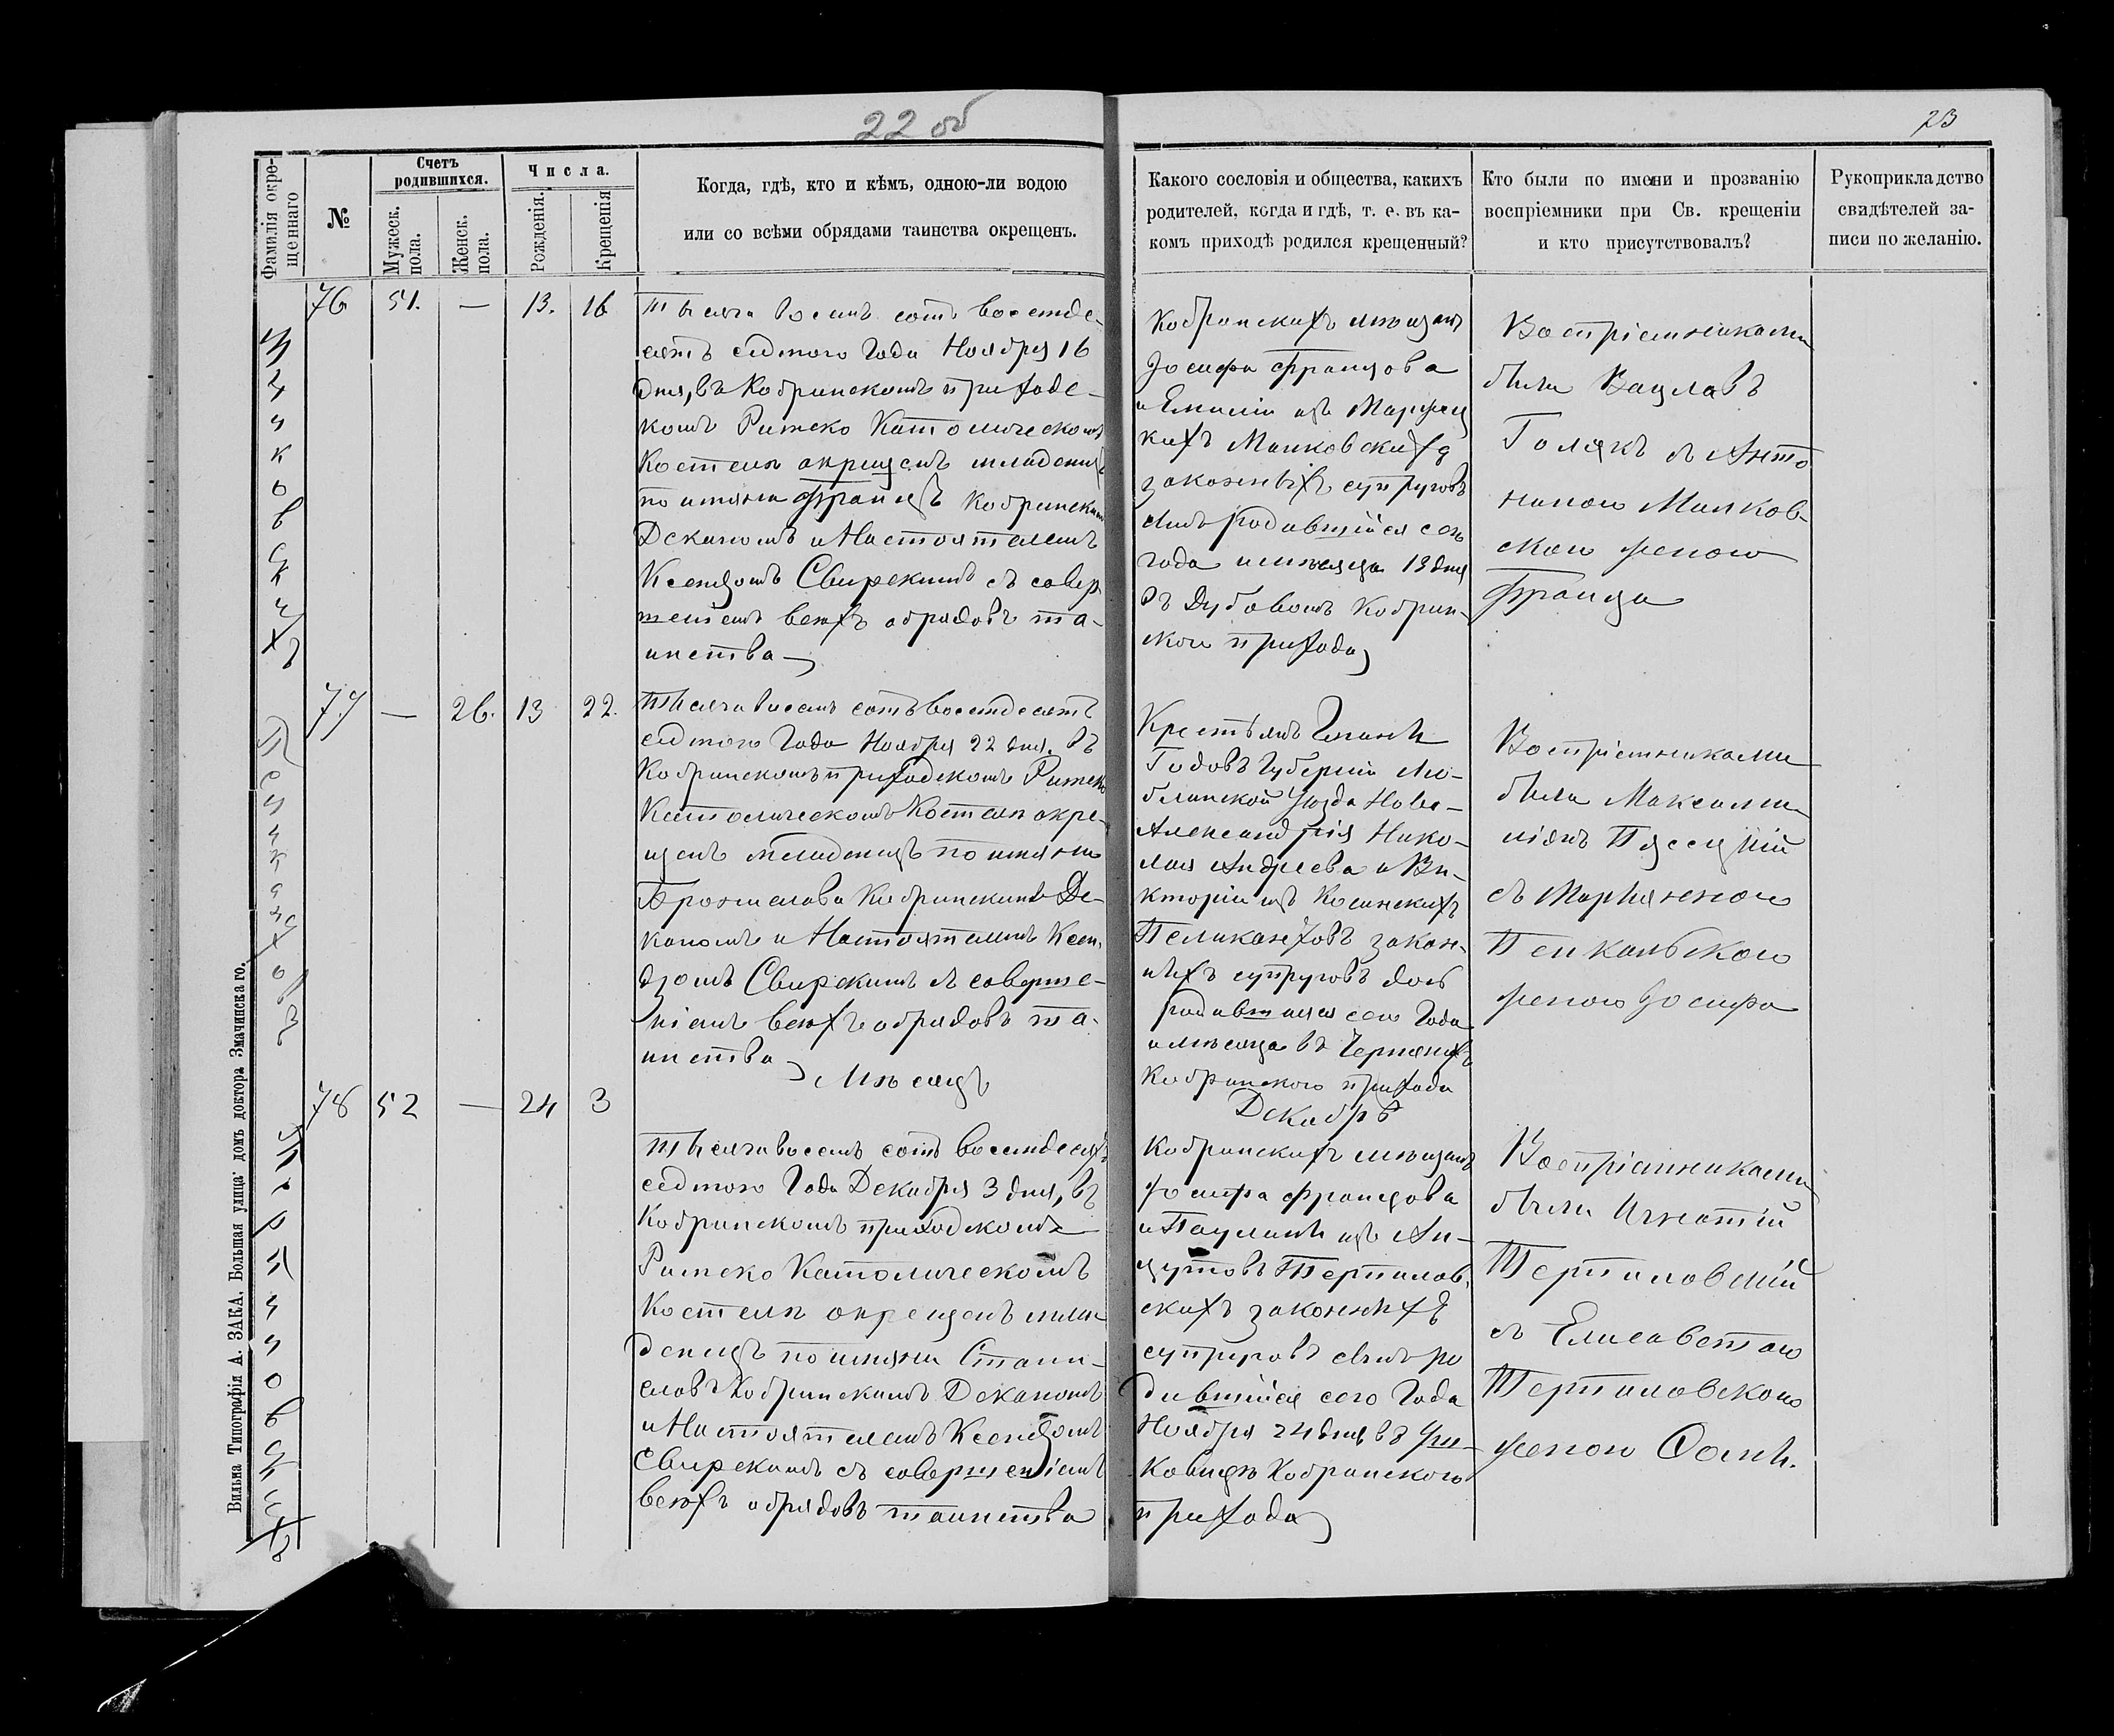 22 об
23
Фамилія окре-
щеннаго
№
Счетъ
родившихся.
Мужеск.
пола.
Женск.
пола.
Числа.
Рожденія.
Крещенія
Когда, гдѣ, кто и кѣмъ, одною-ли водою
или со всѣми обрядами таинства окрещенъ.
Какого сословія и общества, какихъ
родителей, когда и гдѣ, т. е. въ ка-
комъ приходѣ родился крещенный?
Кто были по имени и прозванію
воспріемники при Св. крещеніи
и кто присутствовалъ?
Рукоприкладство
свидѣтелей за-
писи по желанію.
76 51. — 13. 16
Тысяча восемь сотъ восемде-
сятъ седмого Года Ноября 16
дня, въ Кобринскомъ приходс-
комъ Римско Католическомъ
Костелѣ окрещенъ младенецъ
по имени Францъ Кобринскимъ
Деканомъ и Настоятелемъ
Ксендзомъ Свирскимъ съ совер-
шеніемъ всѣхъ обрядовъ та-
инства
Кобринскихъ мѣщанъ
Іосифа Францова
и Емиліи изъ
кихъ Малковскихъ
законныхъ супруговъ
сынъ родившійся сего
года и мѣсяца 13 дня
въ Дубовомъ Кобрин-
скои прихода
Воспріемниками
были Вацлавъ
Голякъ съ Анто
ниною Малков-
скою женою
Франца
77 — 26. 13 22.
Тысяча восемь сотъ восемдесятъ
седмого Года Ноября 22 дня. въ
Кобринскомъ приходскомъ Римско
Католическомъ Костелѣ окре-
щенъ младенецъ по имени
Брониславa Кобринскимъ Де-
каномъ и Настоятелемъ Ксен-
дзомъ Свирскимъ съ соверше-
ніемъ всѣхъ обрядовъ та-
инства
Мѣсяцъ
Крестьянъ Гмины
Годовъ Губерніи Лю-
блинской Уѣзда Ново-
Александрія Нико-
лая Андреева и Ви-
кторіи изъ Косинскихъ
Пеликановъ закон-
ныхъ супруговъ дочь
родившаяся сего Года
и мѣсяца въ
Кобринского прихода
Декабрь
Воспріемниками
были Максими
ліянъ Пясецкій
съ Маріянною
Пенкальскою
женою Іосифа
78 52 — 24 3
Тысяча восемь сотъ восемдесятъ
седмого Года Декабря 3 дня, въ
Кобринскомъ приходскомъ
Римско Католическомъ
Костелѣ окрещенъ мла
денецъ по имени Стани-
славъ Кобринскимъ Деканомъ
и Настоятелемъ Ксендзомъ
Свирскимъ съ совершеніемъ
всѣхъ обрядовъ таинства
Кобринскихъ мѣщанъ
Іосифа Францова
и Паулины изъ Ан-
цутовъ Терпилов-
скихъ законныхъ
супруговъ сынъ ро
дившійся сего Года
Ноября 24 дня въ
Кобринского
прихода
Воспріемниками
были Игнатій
Терпиловскій
съ Елисаветою
Терпиловскою
женою Фомы.
Малковскихъ
Терпиловскихъ
Вильна Типографія А. ЗАКА, Большая улица; домъ доктора Змачинскаго.